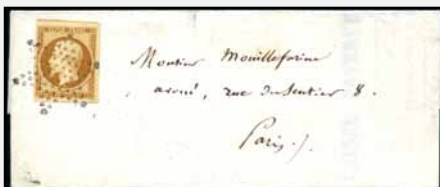 Monsieur Mouillefarine
avoué, rue du Sentier 8.
Paris.